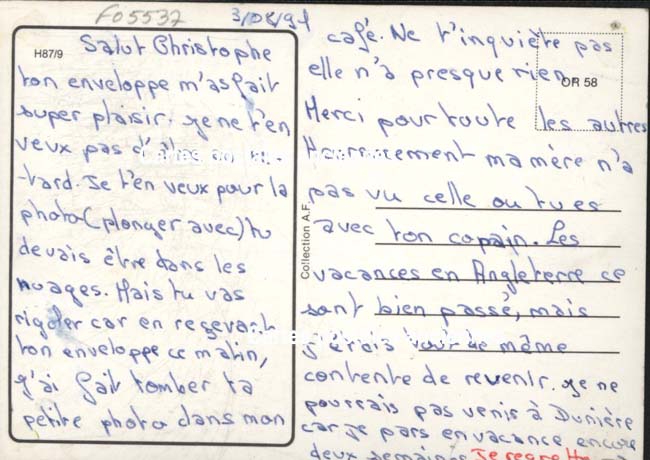 F05537
3/08/91
H87/9
Salut Christophe
ton enveloppe m'as fait
super plaisir. je ne t'en
veux pas d'
-tard. Je t'en veux pour la
photo (plonger avec) tu
devais être dans les
nuages. Mais tu vas
rigoler car en resevant
ton enveloppe ce matin,
j'ai fait tomber ta
petite photo dans mon
café. Ne t'inquiète pas
elle n'a presque rien.
OR 58
Merci pour toute les autres
Heureusement ma mère n'a
pas vu celle ou tu es
avec ton copain. Les
vacances en Angleterre ce
sont bien passé, mais
j'étais tout de même
contente de revenir. je ne
pourrais pas venir à Dunière
car je pars en vacance encore
deux semaines Je regrette
Collection A.F.